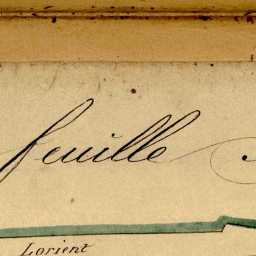 feuille
Lorient